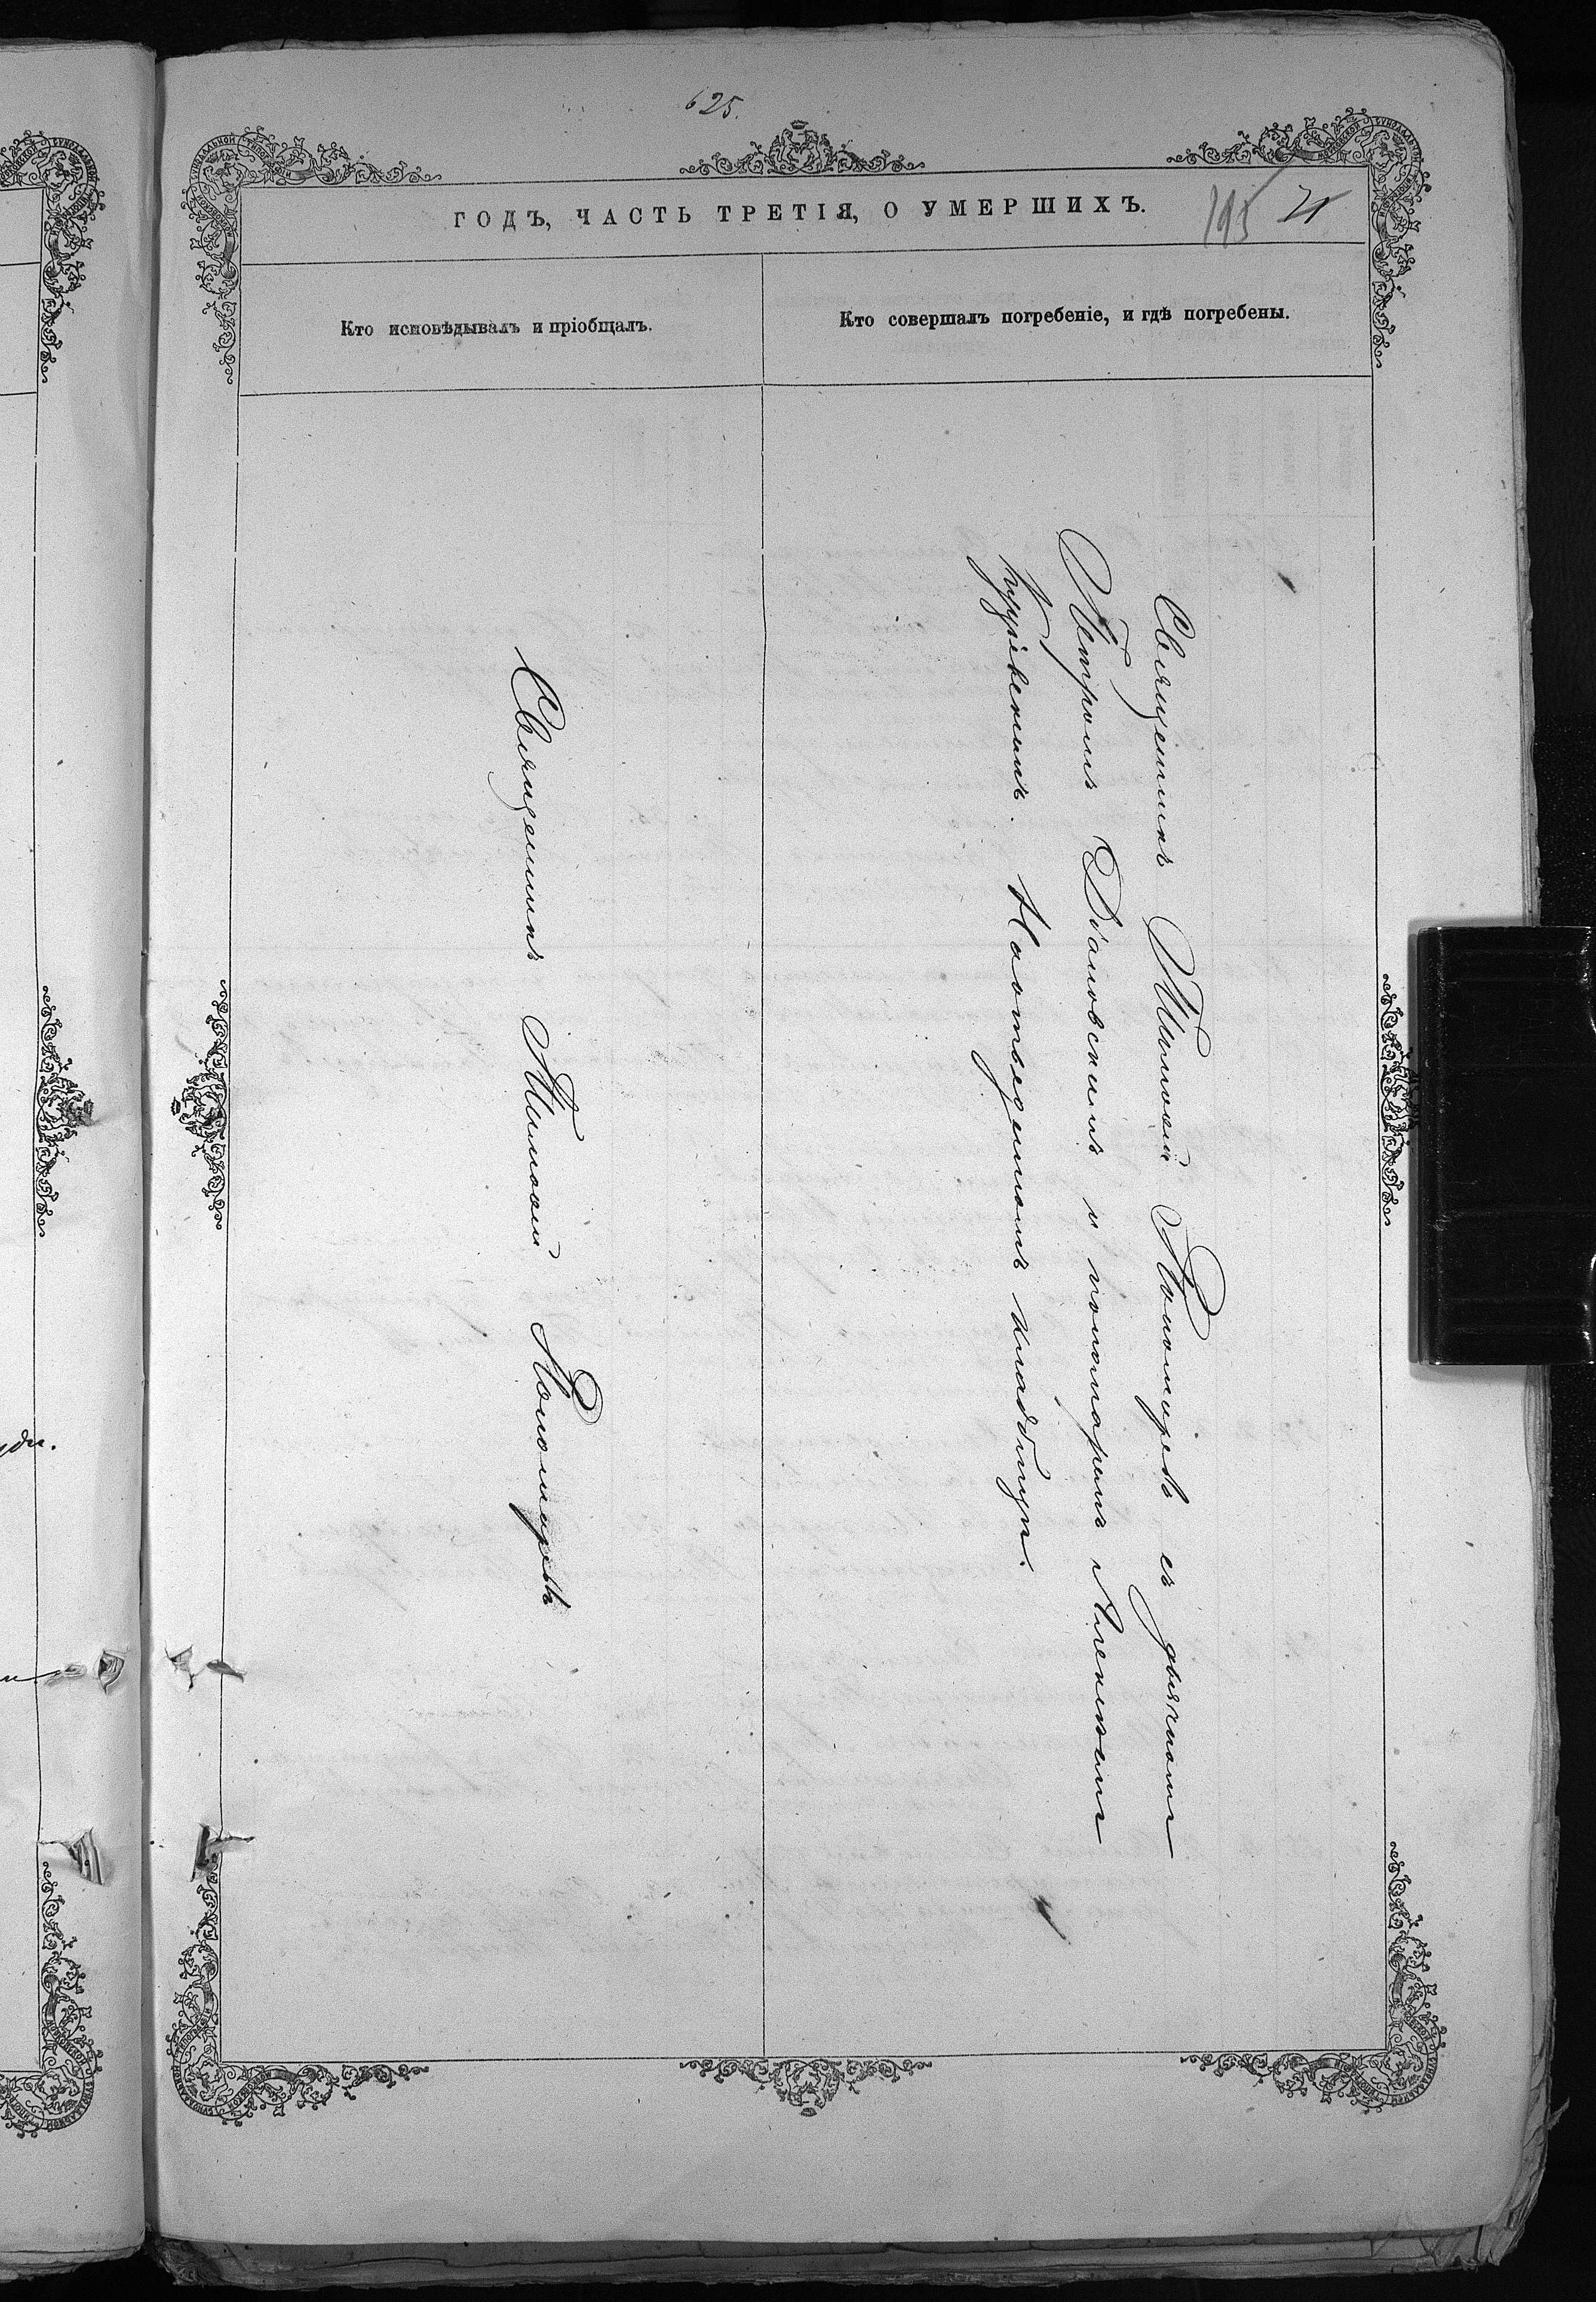 625.
ГОДЪ, ЧАСТЬ ТРЕТІЯ, О УМЕРШИХЪ.
195 21
Кто исповѣдывалъ и пріобщалъ.
Кто совершалъ погребеніе, и гдѣ погребены.
Священникъ Тимоѳей Пономаревъ
Священникъ Тимоѳей Пономаревъ съ дьячкомъ
Петромъ Диановскимъ и пономаремъ Алексѣемъ
на отведенномъ кладбищѣ.